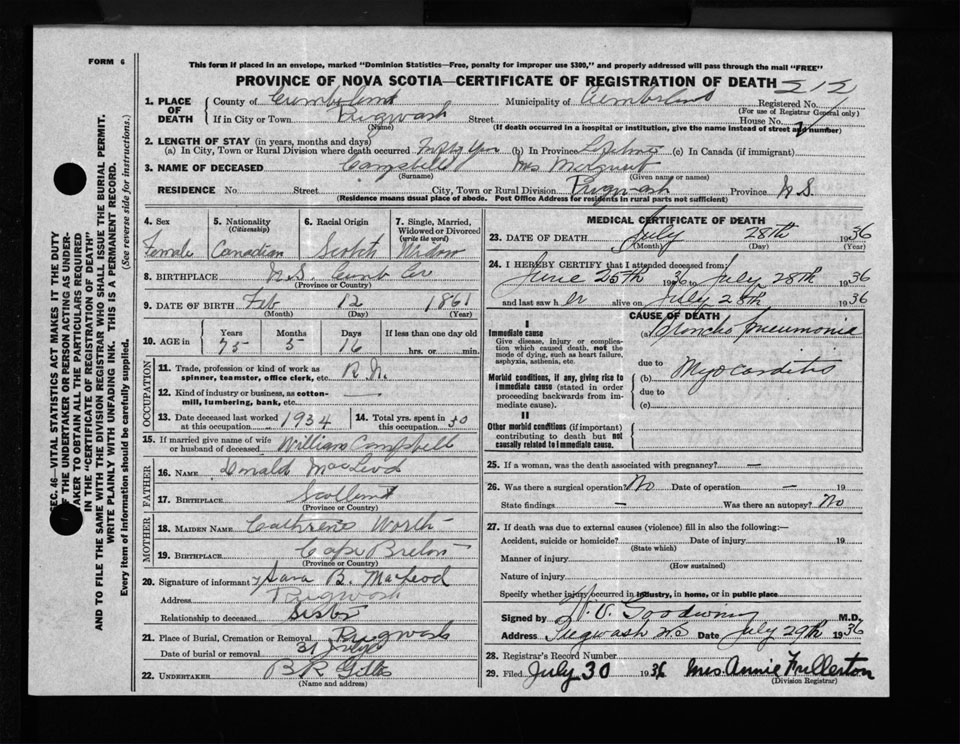 FORM 6
This form if placed in an envelope, marked "Dominion Statistics—Free, penalty for improper use $300," and properly addressed will pass through the mail "FREE"
PROVINCE OF NOVA SCOTIA—CERTIFICATE OF REGISTRATION OF DEATH 212
SEC. 46—VITAL STATISTICS ACT MAKES IT THE DUTY
OF THE UNDERTAKER OR PERSON ACTING AS UNDER-
TAKER TO OBTAIN ALL THE PARTICULARS REQUIRED
IN THE "CERTIFICATE OF REGISTRATION OF DEATH"
AND TO FILE THE SAME WITH THE DIVISION REGISTRAR WHO SHALL ISSUE THE BURIAL PERMIT.
WRITE PLAINLY WITH UNFADING INK. THIS IS A PERMANENT RECORD.
Every item of information should be carefully supplied. (See reverse side for instructions.)
1. PLACE OF DEATH County of Cumberland Municipality of Cumberland Registered No.
(For use of Registrar General only)
If in City or Town Pugwash Street House No.
(Name) (If death occurred in a hospital or institution, give the name instead of street and number)
2. LENGTH OF STAY (in years, months and days)
(a) In City, Town or Rural Division where death occurred (b) In Province (c) In Canada (if immigrant)
3. NAME OF DECEASED Campbell Mrs Margaret
(Surname) (Given name or names)
RESIDENCE No Street City, Town or Rural Division Pugwash Province N.S.
(Residence means usual place of abode. Post Office Address for residents in rural parts not sufficient)
4. Sex Female
5. Nationality (Citizenship) Canadian
6. Racial Origin Scotch
7. Single, Married, Widowed or Divorced (write the word) Widow
8. BIRTHPLACE N.S. Cumb Co
(Province or Country)
9. DATE OF BIRTH Feb 12 1861
(Month) (Day) (Year)
10. AGE in Years 75 Months 5 Days 16 If less than one day old hrs. or min.
OCCUPATION
11. Trade, profession or kind of work as spinner, teamster, office clerk, etc. R.N.
12. Kind of industry or business, as cotton-mill, lumbering, bank, etc. —
13. Date deceased last worked at this occupation 1934 14. Total yrs. spent in this occupation 30
15. If married give name of wife or husband of deceased William Campbell
FATHER
16. NAME Donald MacLeod
17. BIRTHPLACE Scotland
(Province or Country)
MOTHER
18. MAIDEN NAME Cathrene Worth
19. BIRTHPLACE Cape Breton
(Province or Country)
20. Signature of informant Sara B. MacLeod
Address Pugwash
Relationship to deceased Sister
21. Place of Burial, Cremation or Removal Pugwash
Date of burial or removal 31 July
22. UNDERTAKER B R
(Name and address)
MEDICAL CERTIFICATE OF DEATH
23. DATE OF DEATH July 28th 1936
(Month) (Day) (Year)
24. I HEREBY CERTIFY that I attended deceased from
June 25th 1936 to July 28th 1936
and last saw her alive on July 28th 1936
CAUSE OF DEATH
I
Immediate cause (a) Broncho Pneumonia
Give disease, injury or complication which caused death, not the mode of dying, such as heart failure, asphyxia, asthenia, etc.
due to
Morbid conditions, if any, giving rise to immediate cause (stated in order proceeding backwards from immediate cause). (b) Myocarditis
due to
(c)
II
Other morbid conditions (if important) contributing to death but not causally related to immediate cause.
25. If a woman, was the death associated with pregnancy? —
26. Was there a surgical operation? No Date of operation — 19
State findings — Was there an autopsy? No
27. If death was due to external causes (violence) fill in also the following:—
Accident, suicide or homicide? Date of injury 19
(State which)
Manner of injury
(How sustained)
Nature of injury
Specify whether injury occurred in industry, in home, or in public place
Signed by Goodwin M.D.
Address Pugwash NS Date July 29th 1936
28. Registrar's Record Number
29. Filed July 30 1936 Mrs. Annie Fullerton
(Division Registrar)